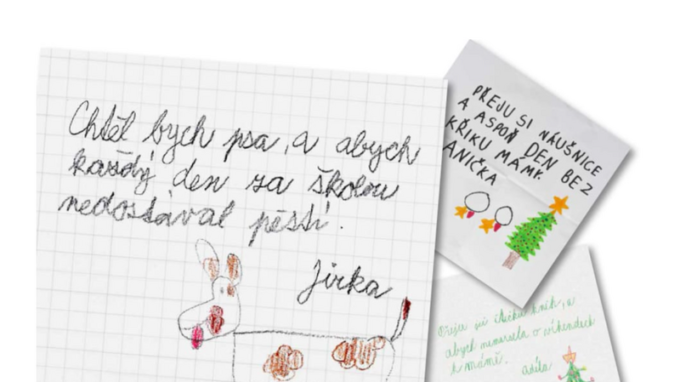 Chtěl bych psa, a abych
každý den za školou
nedostával pěstí.
Jirka
PŘEJU SI NÁUŠNICE
A ASPOŇ DEN BEZ
KŘIKU MÁMY.
ANIČKA
abych nemusela o víkendech
k mámě.